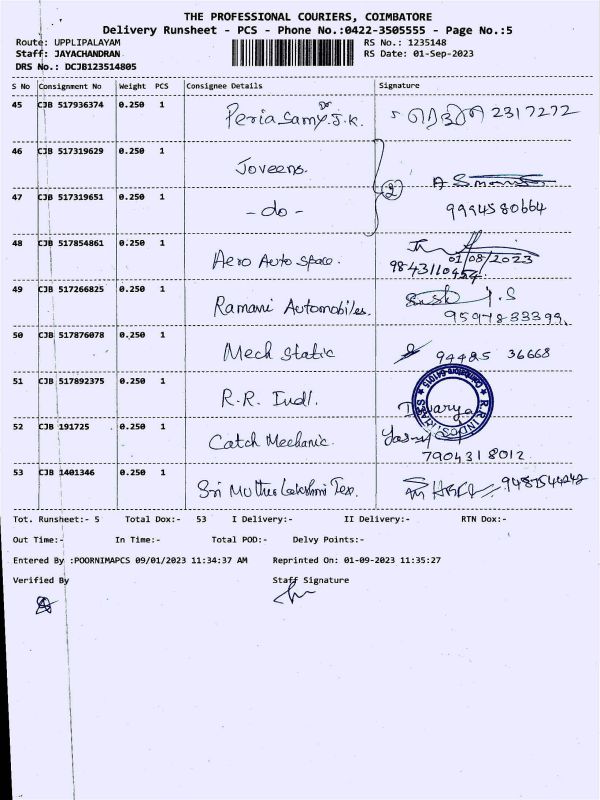 THE PROFESSIONAL COURIERS, COIMBATORE
Delivery Runsheet - PCS - Phone No.:0422-3505555 - Page No.:5
Route: UPPLIPALAYAM RS No.: 1235148
Staff: JAYACHANDRAN RS Date: 01-Sep-2023
DRS No.: DCJB123514805
S No Consignment No Weight PCS Consignee Details Signature
45 CJB 517936374 0.250 1 Periasamy J.K. 2317272
46 CJB 517319629 0.250 1 Joveens.
2
47 CJB 517319651 0.250 1 - do - 9994580664
48 CJB 517854861 0.250 1 Aero Auto space. 01/08/2023
9843110454
49 CJB 517266825 0.250 1 Ramani Automobiles. 9597833399
50 CJB 517876078 0.250 1 Mech Static 94425 36668
51 CJB 517892375 0.250 1 R.R. Indl.
52 CJB 191725 0.250 1 Catch Mechanic. 7904318012
53 CJB 1401346 0.250 1 Sri Muthu Lakshmi Tex.
Tot. Runsheet:- 5 Total Dox:- 53 I Delivery:- II Delivery:- RTN Dox:-
Out Time:- In Time:- Total POD:- Delvy Points:-
Entered By :POORNIMAPCS 09/01/2023 11:34:37 AM Reprinted On: 01-09-2023 11:35:27
Verified By Staff Signature